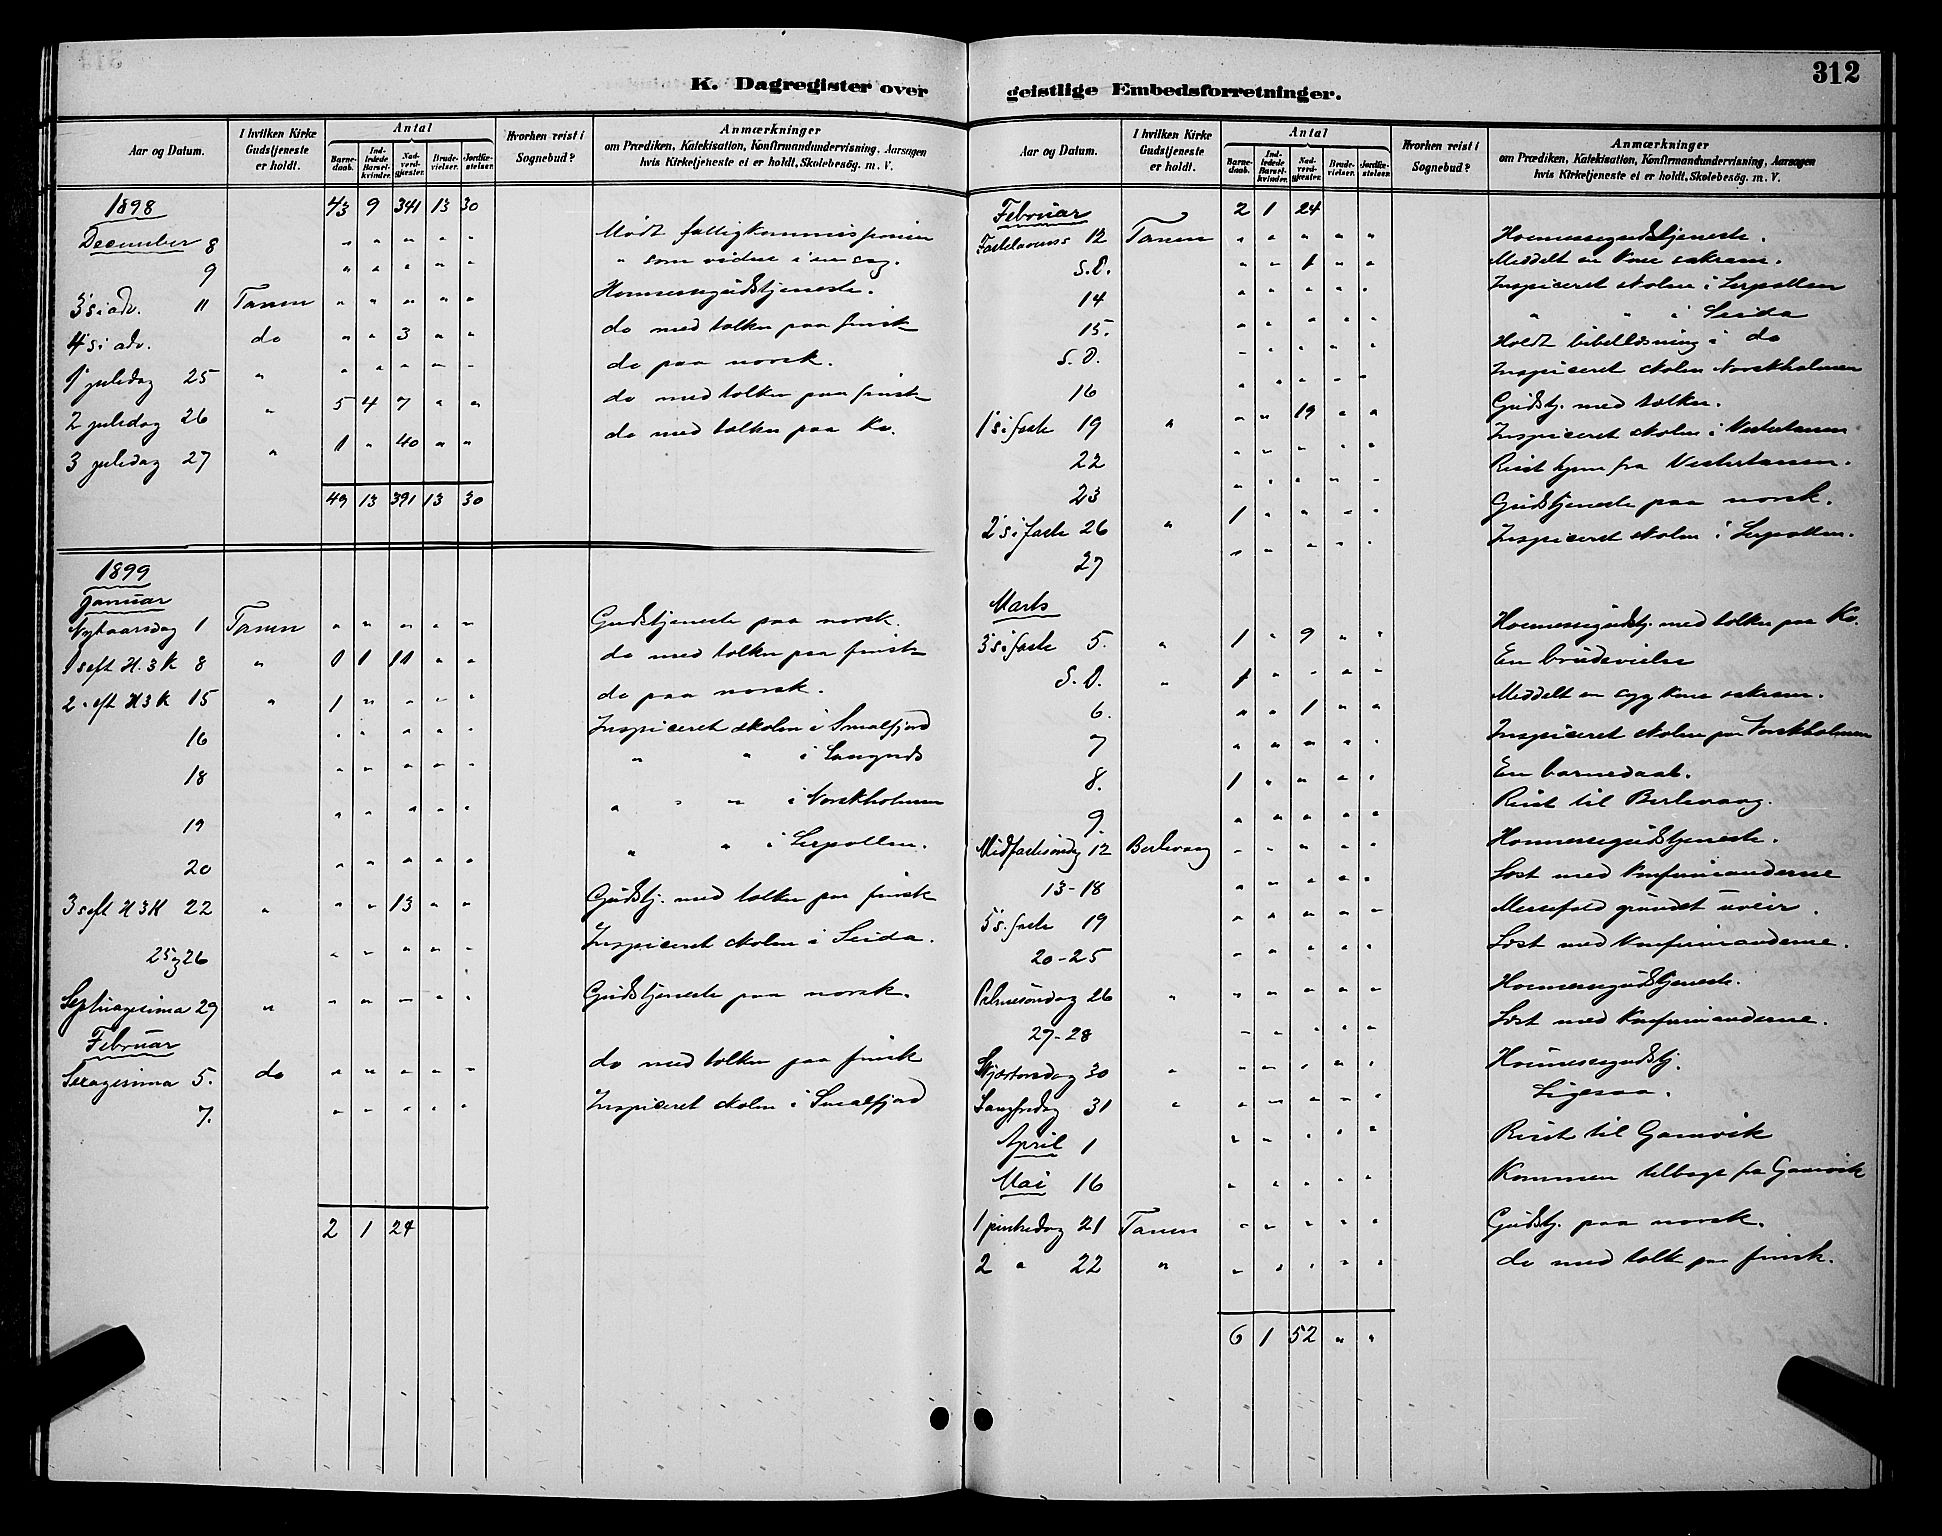 312
K. Dagregister over geistlige Embedsforretninger.
Aar og Datum.
I hvilken Kirke Gudstjeneste er holdt.
Antal
Barnedaab.
Indledede Barselkvinder.
Nadverdgjester.
Brudevielser.
Jordfæstelser.
Hvorhen reist i Sognebud?
Anmærkninger
om Prædiken, Katekisation, Konfirmandundervisning, Aarsagen
hvis Kirketjeneste ei er holdt, Skolebesög. m. V.
1898 43 9 341 13 30
December 8 " " " " " Mödt fattigkommissionen
9 " " " " " " som vidne i en sag.
3' s i adv. 11 Tanen " " " " " Hoimessegudstjeneste.
4' s i adv. do " " 3 " " do med tolken paa finsk
1' juledag 25 " " " " " " do paa norsk.
2 juledag 26 " 5 4 7 " " do med tolken paa finsk
3 juledag 27 " 1 " 40 " " do med tolken paa Kv.
49 13 391 13 30
1899
Januar
Nytaarsdag 1 Tanen " " " " " Gudstjeneste paa norsk.
1 s eft H. 3 K 8 " 1 1 11 " " do med tolken paa finsk
2. s eft H 3 K 15 " 1 " " " " do paa norsk.
16 " " " " " Inspiceret skolen i Smalfjord
18 " " " " " " " i Langnes
19 " " " " " " " " i Norskholmen
20 " " " " " " " i Leirpollen.
3 s eft H 3 K 22 " " " 13 " " Gudstj. med tolken paa finsk
25 & 26 " " " " " Inspiceret skolen i Seida.
Septuagesima 29 " " " " " " Gudstjeneste paa norsk.
Februar
Sexagesima 5. do " " " " " do med tolken paa finsk
7. " " " " " Inspiceret skolen i Smalfjord
2 1 24
Aar og Datum.
I hvilken Kirke Gudstjeneste er holdt.
Antal
Barnedaab.
Indledede Barselkvinder.
Nadverdgjester.
Brudevielser.
Jordfæstelser.
Hvorhen reist i Sognebud?
Anmærkninger
om Prædiken, Katekisation, Konfirmandundervisning, Aarsagen
hvis Kirketjeneste ei er holdt, Skolebesög. m. V.
Februar 2 1 24
Fastelavens s 12 Tanen " " " " " Hoimessegudstjeneste.
S. D. " " 1 " " Meddelt en kone sakram.
14 " " " " " Inspiceret skolen i Leirpollen
15. " " " " " " " i Seida
S. D. " " " " " Holdt bibellæsning i do
16 " " " " " Inspiceret skolen Norskholmen
1' s i faste 19 " " " 19 " " Gudstj. med tolken.
22 " " " " " Inspiceret skolen i Vestertanen
23 " " " " " Reist hjem fra Vestertanen.
2' s i faste 26 " 1 " " " " Gudstjeneste paa norsk.
27 " " " " " Inspiceret skolen i Leirpollen.
Marts
3' s i faste 5. " 1 " 9 " " Hoimessegudstj. med tolken paa Kv.
S. D. " 1 " " " " En brudevielse
6. " " 1 " " Meddelt en syg kone sakram.
7 " " " " " Inspiceret skolen paa Norskholmen
8. 1 " " " " En barnedaab.
9. " " " " " Reist til Berlevaag.
Midfastesöndag 12 Berlevaag " " " " " Hoimessegudstjeneste.
13-18 " " " " " Læst med Konfirmanderne
5' s. faste 19 " " " " " Messefald grundet uveir.
20-25 " " " " " Læst med Konfirmanderne.
Palmesöndag 26 " " " " " " Hoimessegudstjeneste.
27-28 " " " " " Læst med Konfirmanderne.
Skjærtorsdag 30 " " " " " " Hoimessegudstj.
Langfredag 31 " " " " " " Ligesaa.
April 1 " " " " " Reist til Gamvik
Mai 16 " " " " " Kommen tilbage fra Gamvik
1 pinsedag 21 Tanen " " " " " Gudstj. paa norsk.
2 " 22 " " " " " " do med tolk paa finsk.
6 1 52 " "